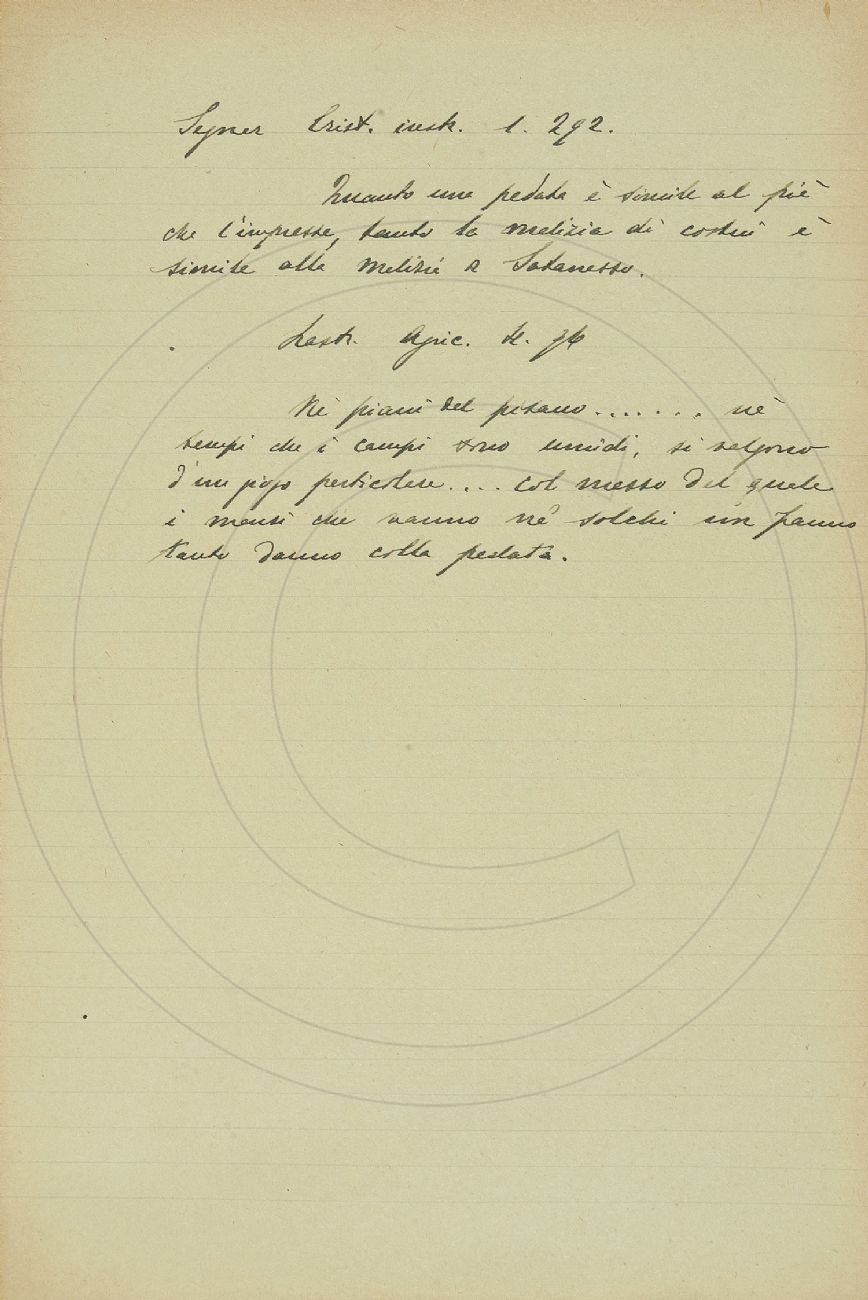 Segner Crist. instr. 1. 292.
Quanto una pedata è simile al piè
che l'impresse, tanto la malizia di costui è
simile alla malizia a Satanasso.
Lastr. Agric. 2.
Nè piani del pisano....... nè
tempi che i campi sono umidi, si valgono
d'un giogo particolare.... col mezzo del quale
i manzi che vanno nè solchi non fanno
tanto danno colla pedata.